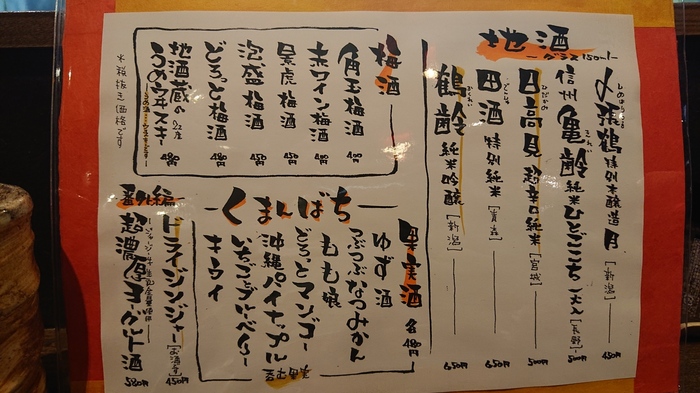 地酒
ーグラス150mlー
〆張鶴 特別本醸造 月 [新潟] 450円
信州亀齢 純米ひとごこち 火入 [長野] 500円
日高見 超辛口純米 [宮城] 500円
田酒 特別純米 [青森] 650円
鶴齢 純米吟醸 [新潟] 650円
梅酒
角玉梅酒 400円
赤ワイン梅酒 400円
景虎梅酒 450円
泡盛梅酒 450円
どろっと梅酒 480円
地酒蔵の
うめウヰスキー 480円
※税抜き価格です
ーくまんばちー
果実酒 各480円
ゆず酒
つぶつぶなつみかん
もも娘
どろっとマンゴー
沖縄パイナップル
いちごとブルーベリー
キウイ
呑む果実
番外編
ドライジンジャー [お酒です] 450円
超濃厚ヨーグルト酒 580円